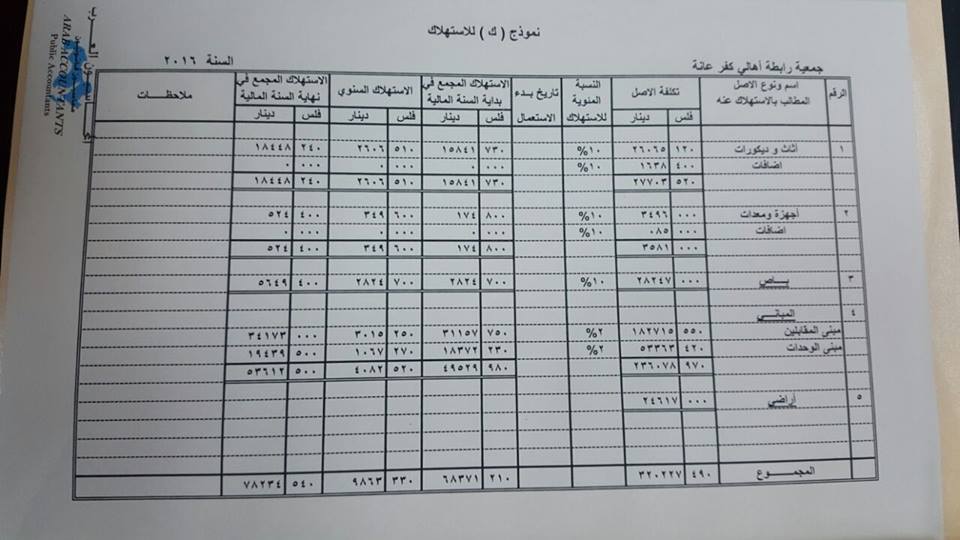 نموذج ( ك ) للاستهلاك
جمعية رابطة أهالي كفر عانة السنة ٢٠١٦
الرقم اسم ونوع الاصل المطالب بالاستهلاك عنه تكلفة الاصل النسبة المئوية للاستهلاك تاريخ بدء الاستعمال الاستهلاك المجمع في بداية السنة المالية الاستهلاك السنوي الاستهلاك المجمع في نهاية السنة المالية ملاحظات
فلس دينار فلس دينار فلس دينار فلس دينار
١ أثاث و ديكورات ١٢٠ ٢٦٠٦٥ %١٠ ٧٣٠ ١٥٨٤١ ٥١٠ ٢٦٠٦ ٢٤٠ ١٨٤٤٨
اضافات ٤٠٠ ١٦٣٨ %١٠ ٠٠٠ ٠ ٠٠٠ ٠ ٠٠٠ ٠
٥٢٠ ٢٧٧٠٣ ٧٣٠ ١٥٨٤١ ٥١٠ ٢٦٠٦ ٢٤٠ ١٨٤٤٨
٢ أجهزة ومعدات ٠٠٠ ٣٤٩٦ %١٠ ٨٠٠ ١٧٤ ٦٠٠ ٣٤٩ ٤٠٠ ٥٢٤
اضافات ٠٠٠ ٠٨٥ %١٠ ٠٠٠ ٠ ٠٠٠ ٠ ٠٠٠ ٠
٠٠٠ ٣٥٨١ ٨٠٠ ١٧٤ ٦٠٠ ٣٤٩ ٤٠٠ ٥٢٤
٣ بــاص ٠٠٠ ٢٨٢٤٧ %١٠ ٧٠٠ ٢٨٢٤ ٧٠٠ ٢٨٢٤ ٤٠٠ ٥٦٤٩
٤ المبانــي
مبنى المقابلين ٥٥٠ ١٨٢٧١٥ %٢ ٧٥٠ ٣١١٥٧ ٢٥٠ ٣٠١٥ ٠٠٠ ٣٤١٧٣
مبنى الوحدات ٤٢٠ ٥٣٣٦٣ %٢ ٢٣٠ ١٨٣٧٢ ٢٧٠ ١٠٦٧ ٥٠٠ ١٩٤٣٩
٩٧٠ ٢٣٦٠٧٨ ٩٨٠ ٤٩٥٢٩ ٥٢٠ ٤٠٨٢ ٥٠٠ ٥٣٦١٢
٥ أراضي ٠٠٠ ٢٤٦١٧
المجمــــوع ٤٩٠ ٣٢٠٢٢٧ ٢١٠ ٦٨٣٧١ ٣٣٠ ٩٨٦٣ ٥٤٠ ٧٨٢٣٤
ARAB ACCOUNTANTS
Public Accountants